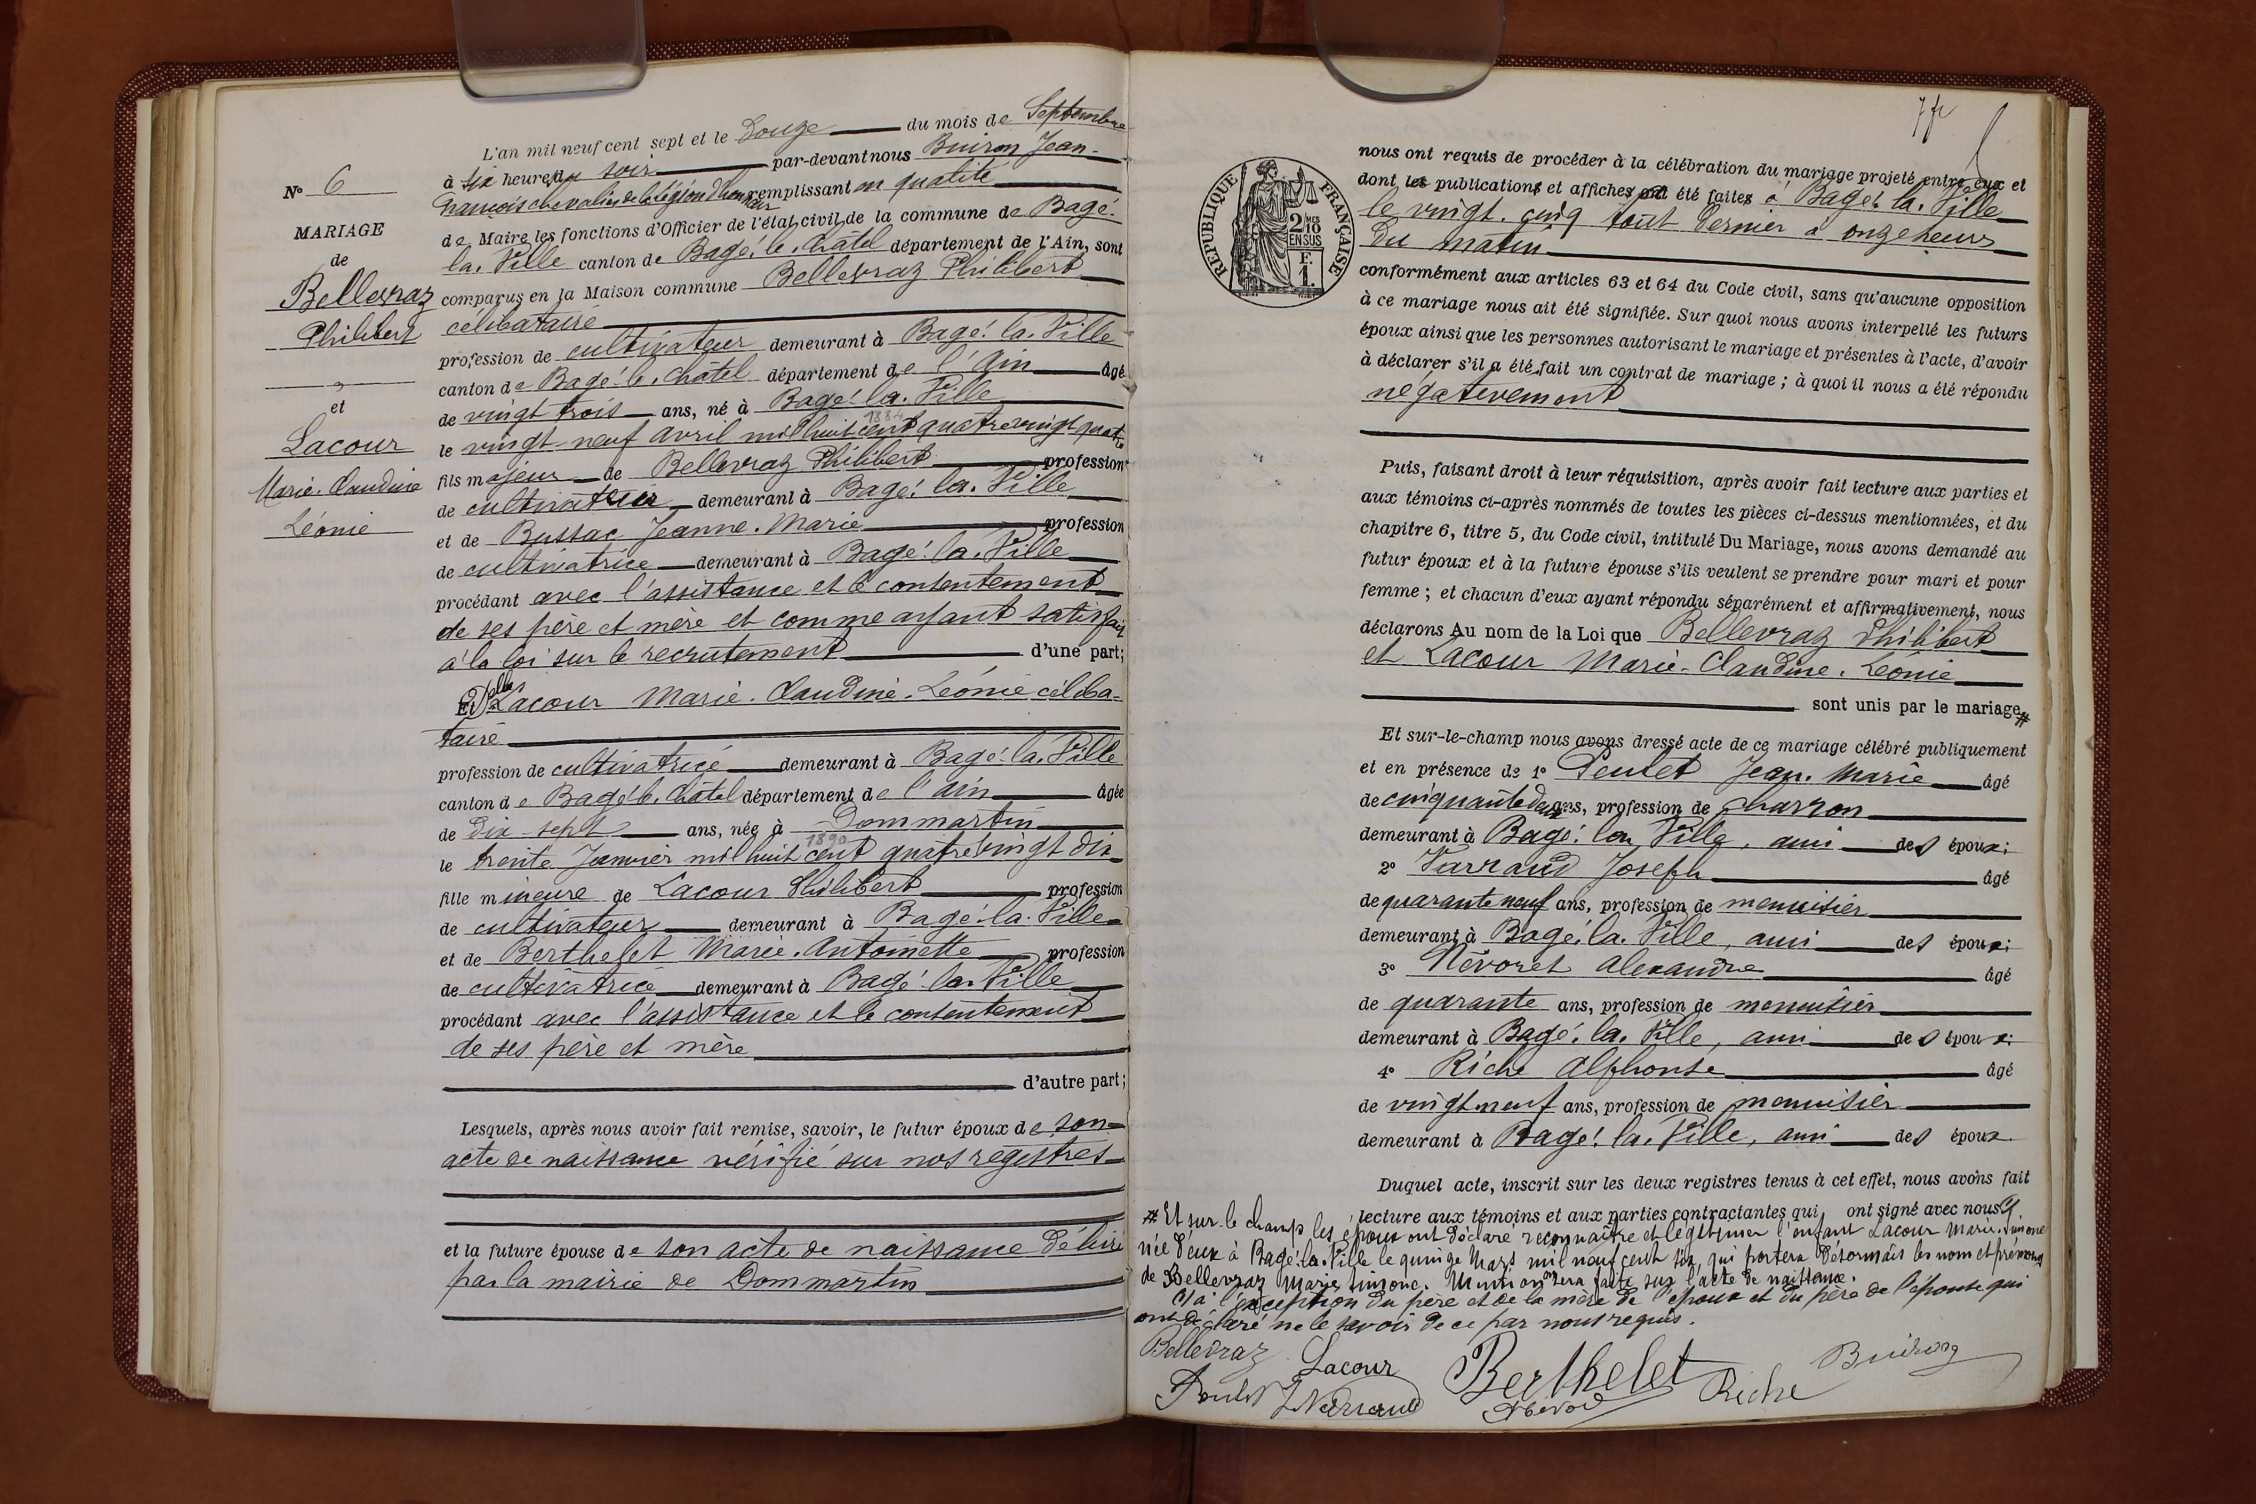 N° 6
MARIAGE
de
Bellevraz
Philibert
et
Lacour
Marie-Claudine
Léonie
L'an mil neuf cent sept et le Douze du mois de Septembre
à six heures du soir par-devant nous Buiron Jean-
François chevalier de la légion d'honneur remplissant en qualité
de Maire les fonctions d'Officier de l'état civil de la commune de Bagé-
la-Ville canton de Bagé-le-Châtel département de l'Ain, sont
comparus en la Maison commune Bellevraz Philibert
célibataire
profession de cultivateur demeurant à Bagé-la-Ville
canton de Bagé-le-Châtel département de l'Ain âgé
de vingt trois ans, né à Bagé-la-Ville
1884
le vingt-neuf avril mil huit cent quatre vingt quatre
fils majeur de Bellevraz Philibert profession
de cultivateur demeurant à Bagé-la-Ville
et de Bussac Jeanne-Marie profession
de cultivatrice demeurant à Bagé-la-Ville
procédant avec l'assistance et le consentement
de ses père et mère et comme ayant satisfait
à la loi sur le recrutement d'une part;
Et Delle Lacour Marie-Claudine-Léonie céliba-
taire
profession de cultivatrice demeurant à Bagé-la-Ville
canton de Bagé-le-Châtel département de l'ain âgée
de dix-sept ans, née à Dommartin
1890
le trente Janvier mil huit cent quatre vingt dix
fille mineure de Lacour Philibert profession
de cultivateur demeurant à Bagé-la-Ville
et de Berthelet Marie-Antoinette profession
de cultivatrice demeurant à Bagé-la-Ville
procédant avec l'assistance et le consentement
de ses père et mère
d'autre part;
Lesquels, après nous avoir fait remise, savoir, le futur époux de son
acte de naissance vérifié sur nos registres
et la future épouse de son acte de naissance délivré
par la mairie de Dommartin
RÉPUBLIQUE FRANÇAISE
2/10
EN SUS
F.
1.
nous ont requis de procéder à la célébration du mariage projeté entre eux et
dont les publications et affiches ont été faites à Bagé-la-Ville
le vingt-cinq août dernier à onze heures
du matin
conformément aux articles 63 et 64 du Code civil, sans qu'aucune opposition
à ce mariage nous ait été signifiée. Sur quoi nous avons interpellé les futurs
époux ainsi que les personnes autorisant le mariage et présentes à l'acte, d'avoir
à déclarer s'il a été fait un contrat de mariage; à quoi il nous a été répondu
négativement
Puis, faisant droit à leur réquisition, après avoir fait lecture aux parties et
aux témoins ci-après nommés de toutes les pièces ci-dessus mentionnées, et du
chapitre 6, titre 5, du Code civil, intitulé Du Mariage, nous avons demandé au
futur époux et à la future épouse s'ils veulent se prendre pour mari et pour
femme; et chacun d'eux ayant répondu séparément et affirmativement, nous
déclarons Au nom de la Loi que Bellevraz Philibert
et Lacour Marie-Claudine-Léonie
sont unis par le mariage #
Et sur-le-champ nous avons dressé acte de ce mariage célébré publiquement
et en présence de 1° Peulet Jean-Marie âgé
de cinquante deux ans, profession de charron
demeurant à Bagé-la-Ville, ami des époux;
2° Varraud Joseph âgé
de quarante neuf ans, profession de menuisier
demeurant à Bagé-la-Ville, ami des époux;
3° Névoret Alexandre âgé
de quarante ans, profession de menuisier
demeurant à Bagé-la-Ville, ami des époux;
4° Riche Alphonse âgé
de vingt neuf ans, profession de menuisier
demeurant à Bagé-la-Ville, ami des époux.
Duquel acte, inscrit sur les deux registres tenus à cet effet, nous avons fait
lecture aux témoins et aux parties contractantes qui ont signé avec nous
# Et sur-le-champ les époux ont déclaré reconnaître et légitimer l'enfant Lacour Marie-Simone
née d'eux à Bagé-la-Ville le quinze Mars mil neuf cent six, qui portera désormais les nom et prénoms
de Bellevraz Marie Simone. Mention en sera faite sur l'acte de naissance.
à l'exception du père et de la mère de l'époux et du père de l'épouse qui
ont déclaré ne le savoir de ce par nous requis.
Bellevraz Lacour Berthelet Buiron
Riche